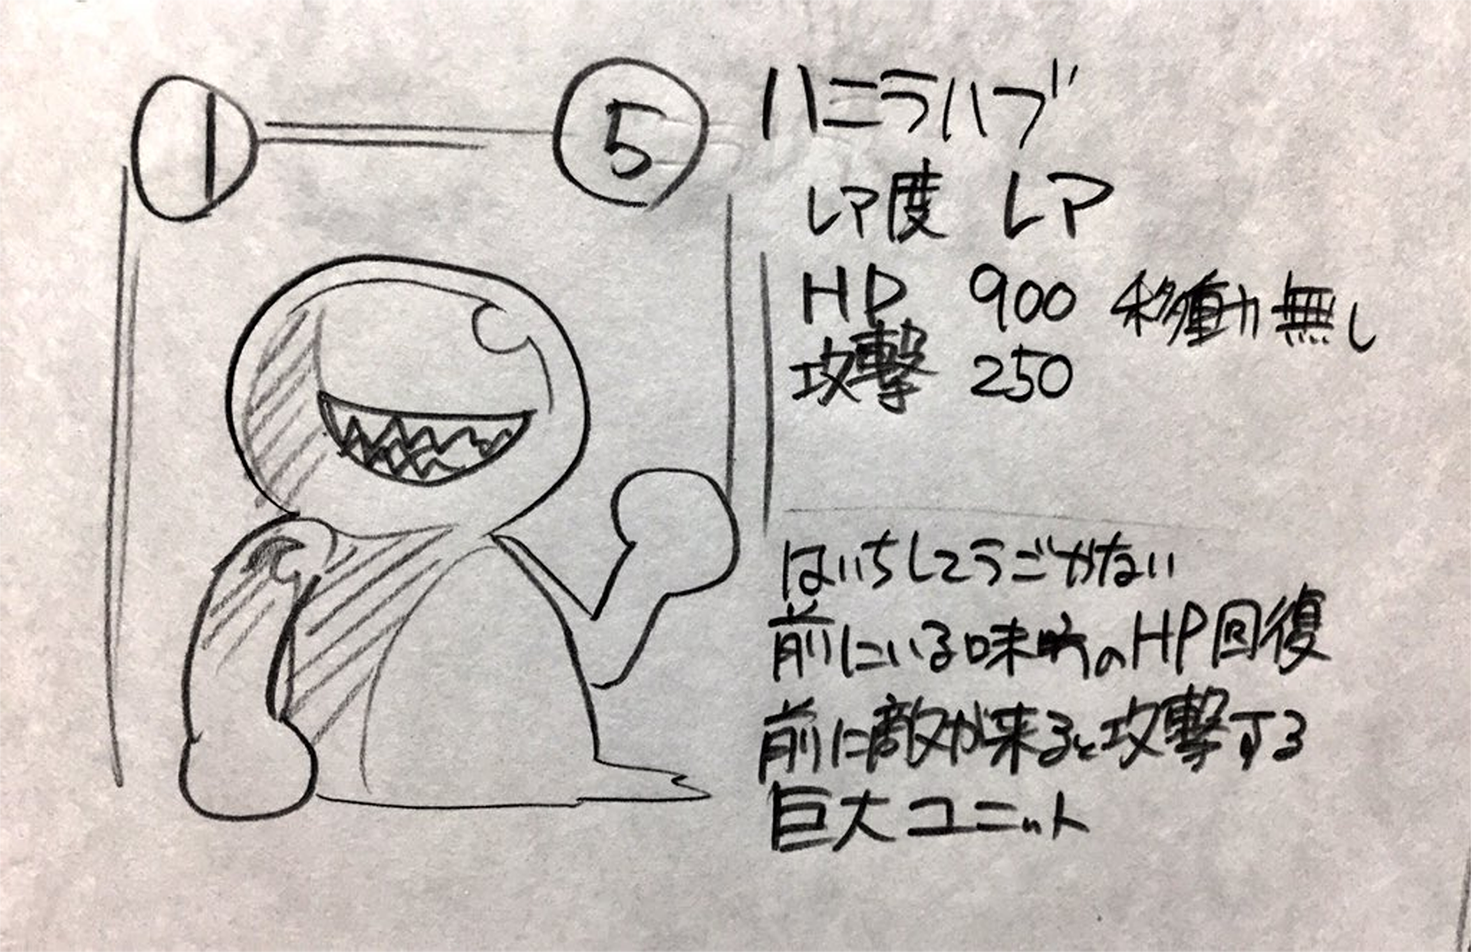 1
5
ハニラハブ
レア度 レア
HP 900 移動無し
攻撃 250
はいちしてうごかない
前にいる味方のHP回復
前に敵が来ると攻撃する
巨大ユニット